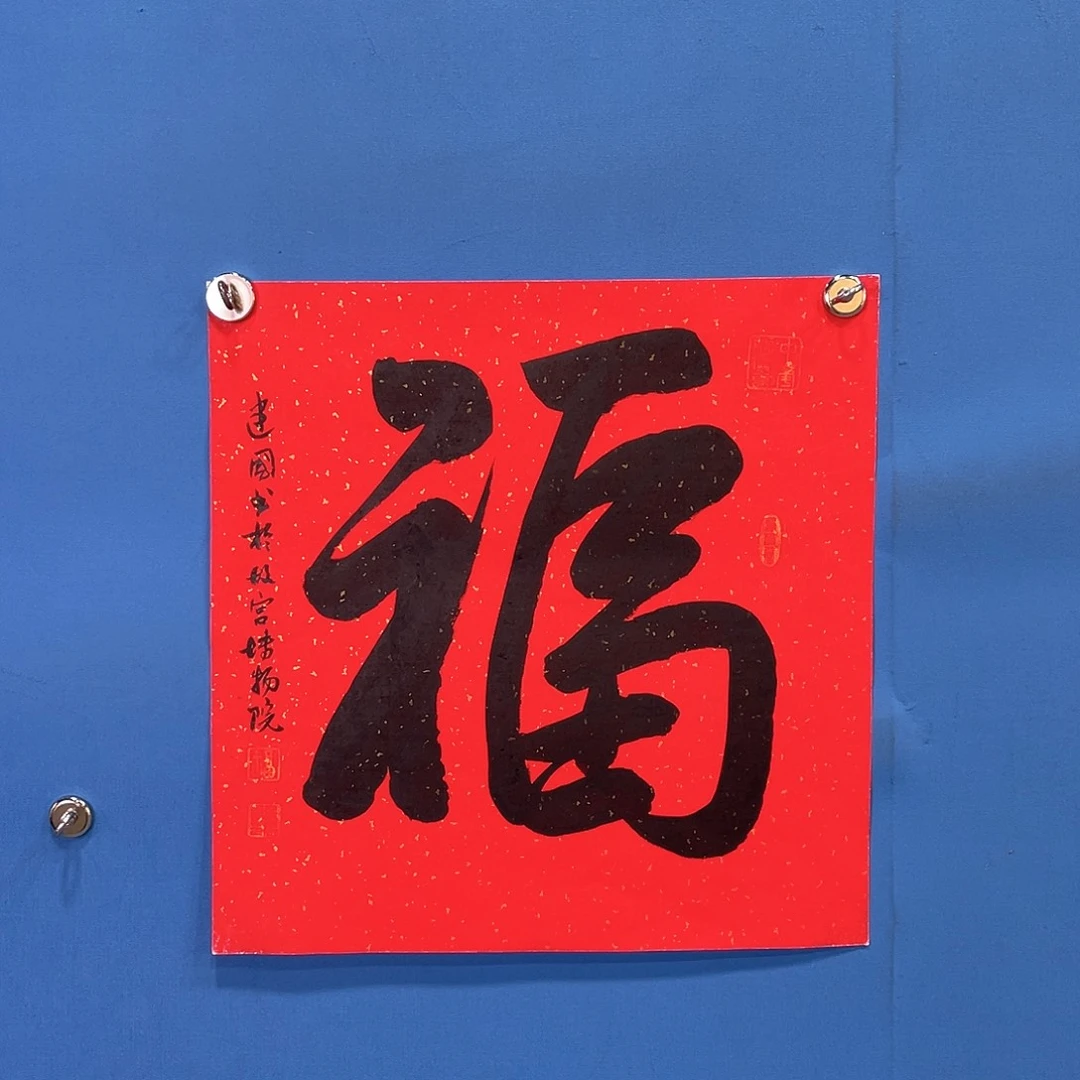 福
建國书於故宫博物院